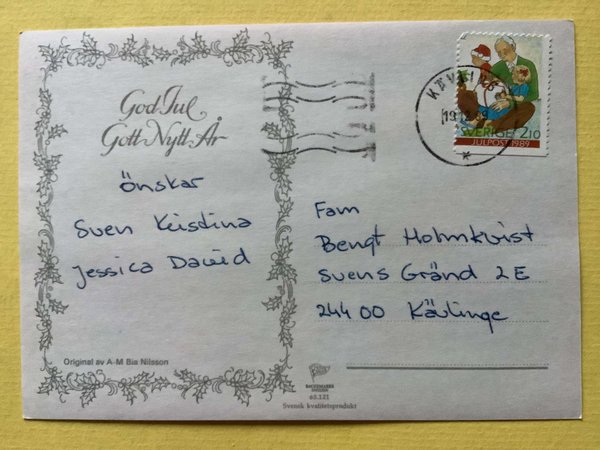 God Jul
Gott Nytt År
önskar
Sven Kristina
Jessica David
Original av A-M Bia Nilsson
KÄVLINGE
SVERIGE 2.10
JULPOST 1989
Fam
Bengt Holmkvist
Svens Gränd 2 E
244 00 Kävlinge
SWEDEN
63.121
Svensk kvalitetsprodukt